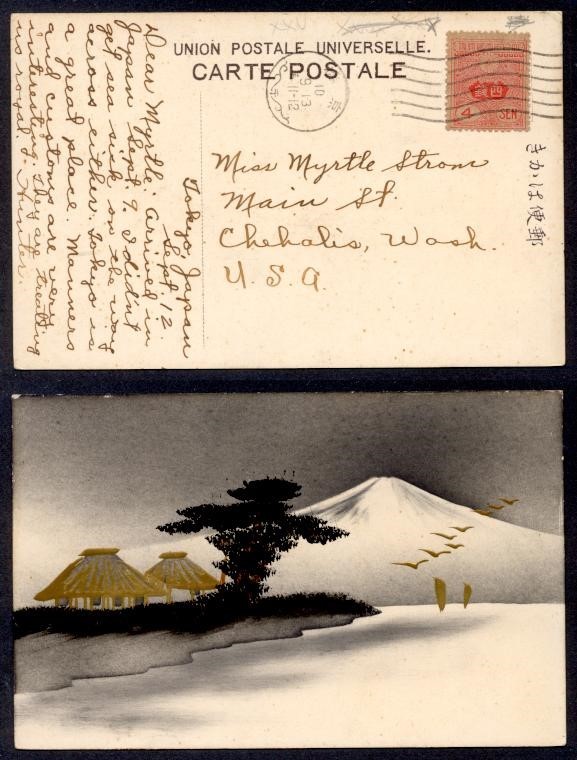 UNION POSTALE UNIVERSELLE.
CARTE POSTALE
4 SEN
10
9 13
11-12
きかは便郵
Miss Myrtle Strom
Main St.
Chehalis, Wash.
U. S. A.
Tokyo, Japan
Sept 12
Dear Myrtle: Arrived in
Japan Sept 9. I didn't
get sea sick on the way
across either. Tokyo is
a great place. Manners
and customs are very
interesting. They are treating
us royal. Hunter.